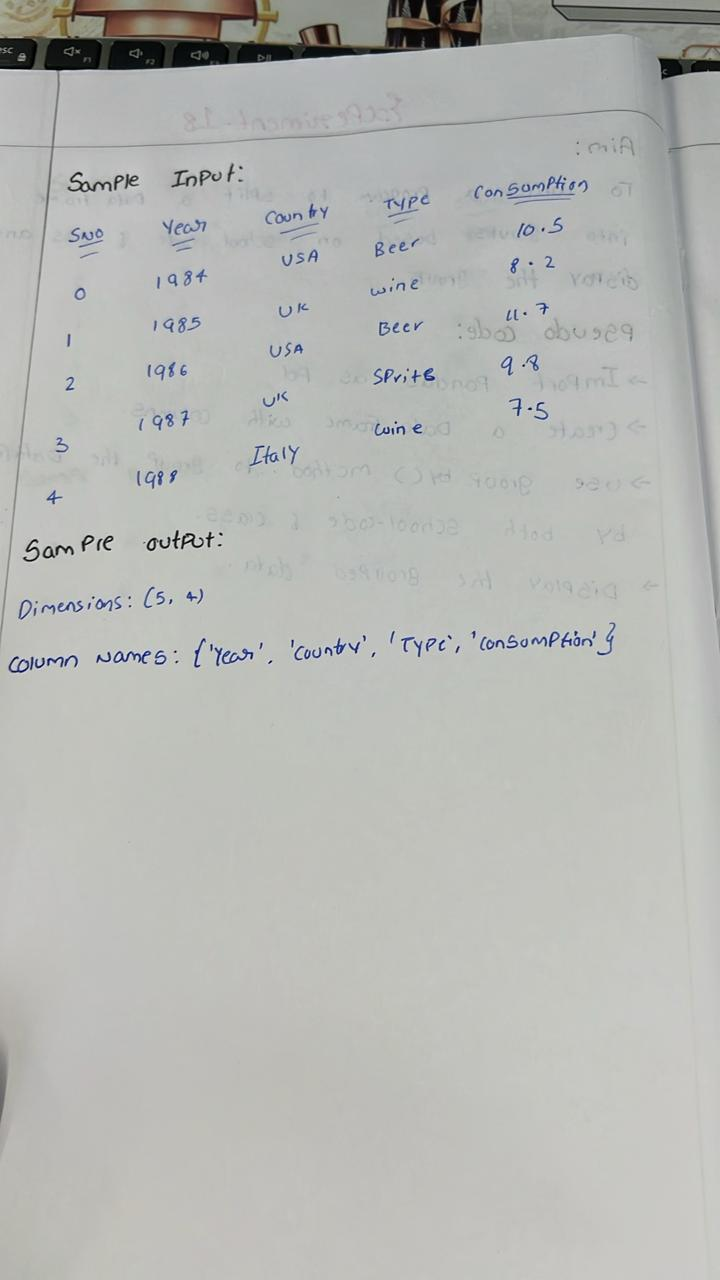 Sample Input:
SNO Year Country Type Consumption
0 1984 USA Beer 10.5
1 1985 UK wine 8.2
2 1986 USA Beer 11.7
3 1987 UK Sprits 9.8
4 1988 Italy wine 7.5
Sample output:
Dimensions: (5, 4)
Column Names: {'Year', 'Country', 'Type', 'Consumption'}